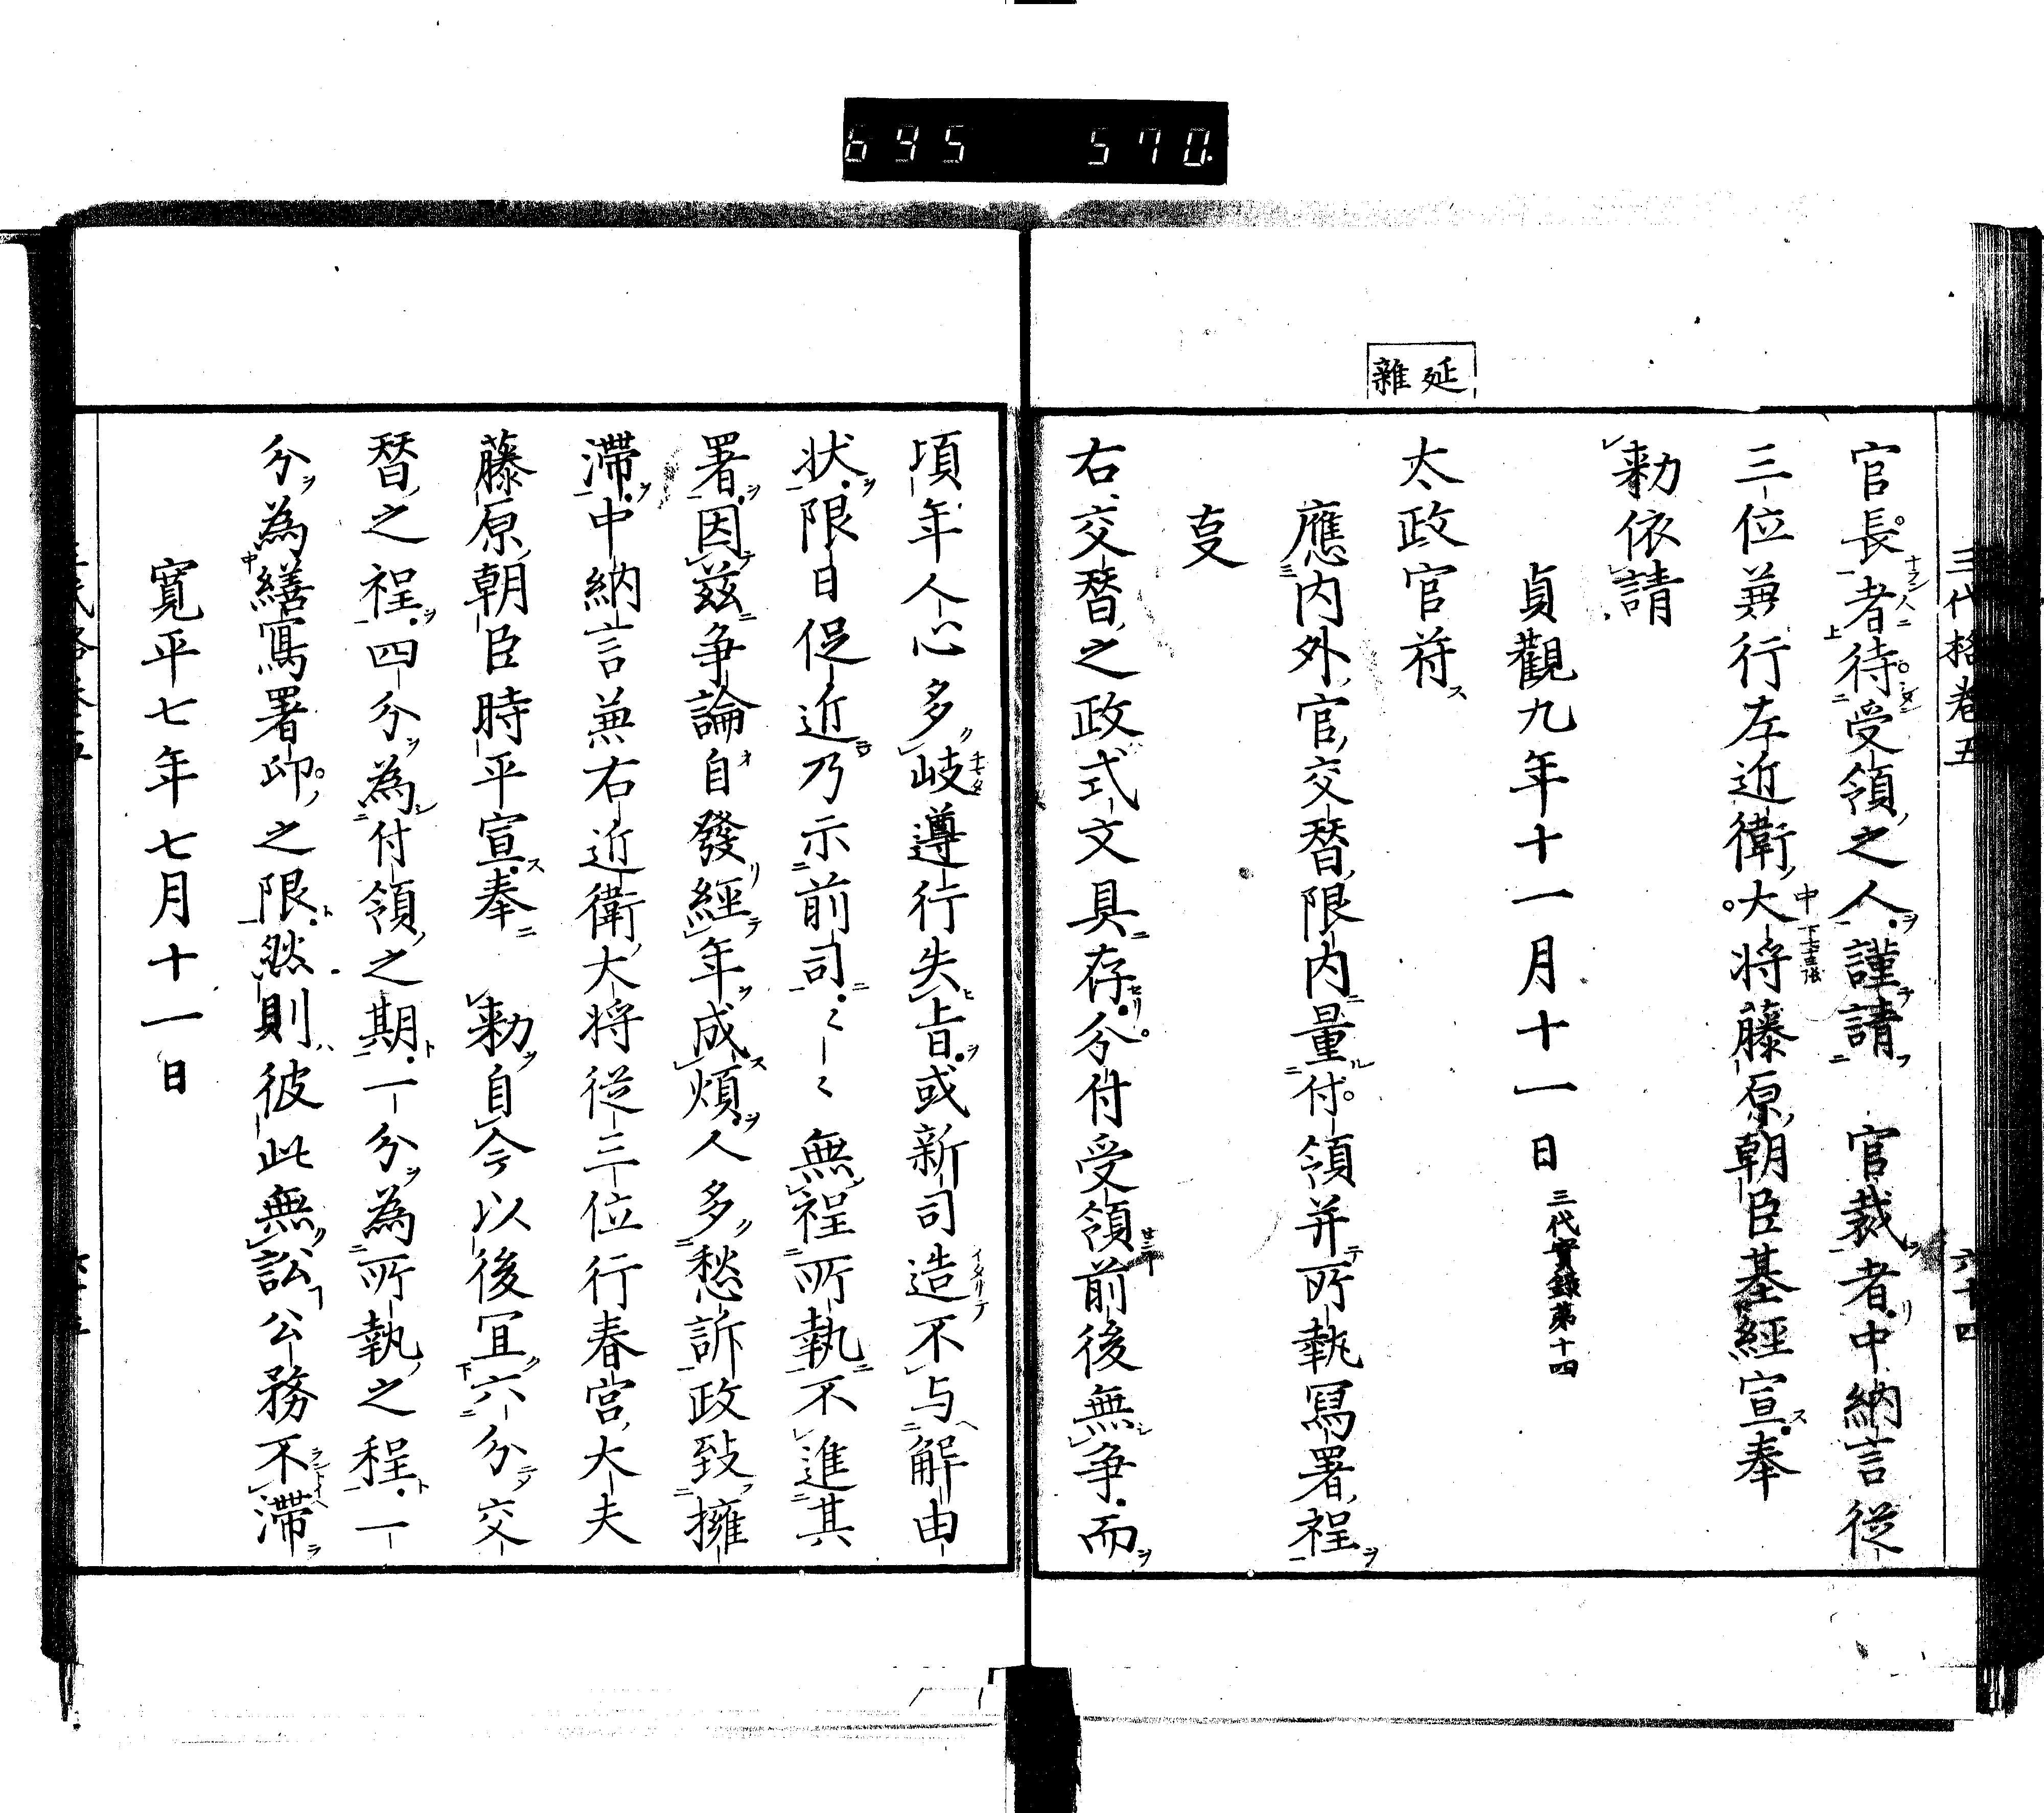 695 570
延
雜
三代格卷五 六十四
官長者待受領之人謹請 官裁者中納言從
三位兼行左近衛大将藤原朝臣基經宣奉
勅依請
貞觀九年十一月十一日 三代實錄第十四
太政官符
應內外官交替限內量付領并所執寫署程
㕝
右交替之政式文具存分付受領前後無争而
頃年人心多岐遵行失旨或新司造不与解由
状限日促近乃示前司〻〻無程所執不進其
署因茲争論自發經年成煩人多愁訴政致擁
滯中納言兼右近衛大将從三位行春宮大夫
藤原朝臣時平宣奉 勅自今以後宜六分交
替之程四分為付領之期一分為所執之程一
分為繕寫署印之限然則彼此無訟公務不滯
寛平七年七月十一日